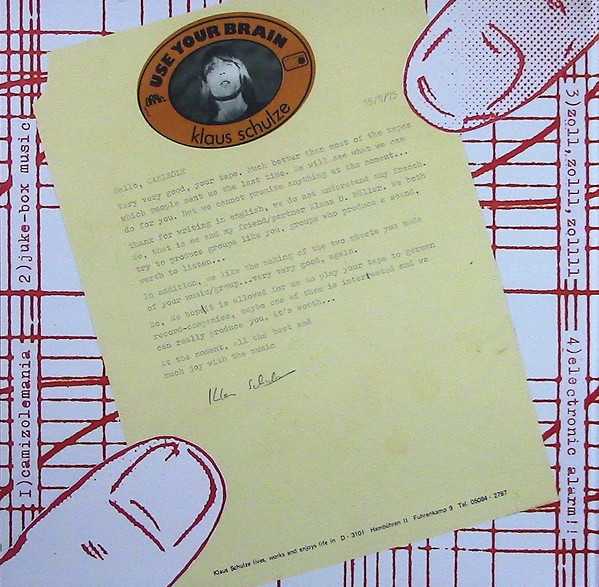 USE YOUR BRAIN
klaus schulze
15/9/75
Hello, CAMIZOLE
Very very good, your tape. Much better than most of the tapes
which people sent us the last time. We will see what we can
do for you. But we cannot promise anything at the moment...
Thank for writing in english, we do not understand any french.
We, that is me and my friend/partner Klaus D. Müller. We both
try to produce groups like you, groups who produce a sound,
worth to listen...
In addition, we like the making of the two sheets you made
of your music/group...very very good, again.
So. We hope it is allowed for us to play your tape to german
record-companies, maybe one of them is interested and we
can really produce you, it's worth...
At the moment, all the best and
much joy with the music
Klaus Schulze
Klaus Schulze lives, works and enjoys life in D - 3101 Hambühren II Fuhrenkamp 9 Tel. 05084 - 2787
1)camizolemania
2)juke-box music
3)zoll,zolll,zollll
4)electronic alarm!!